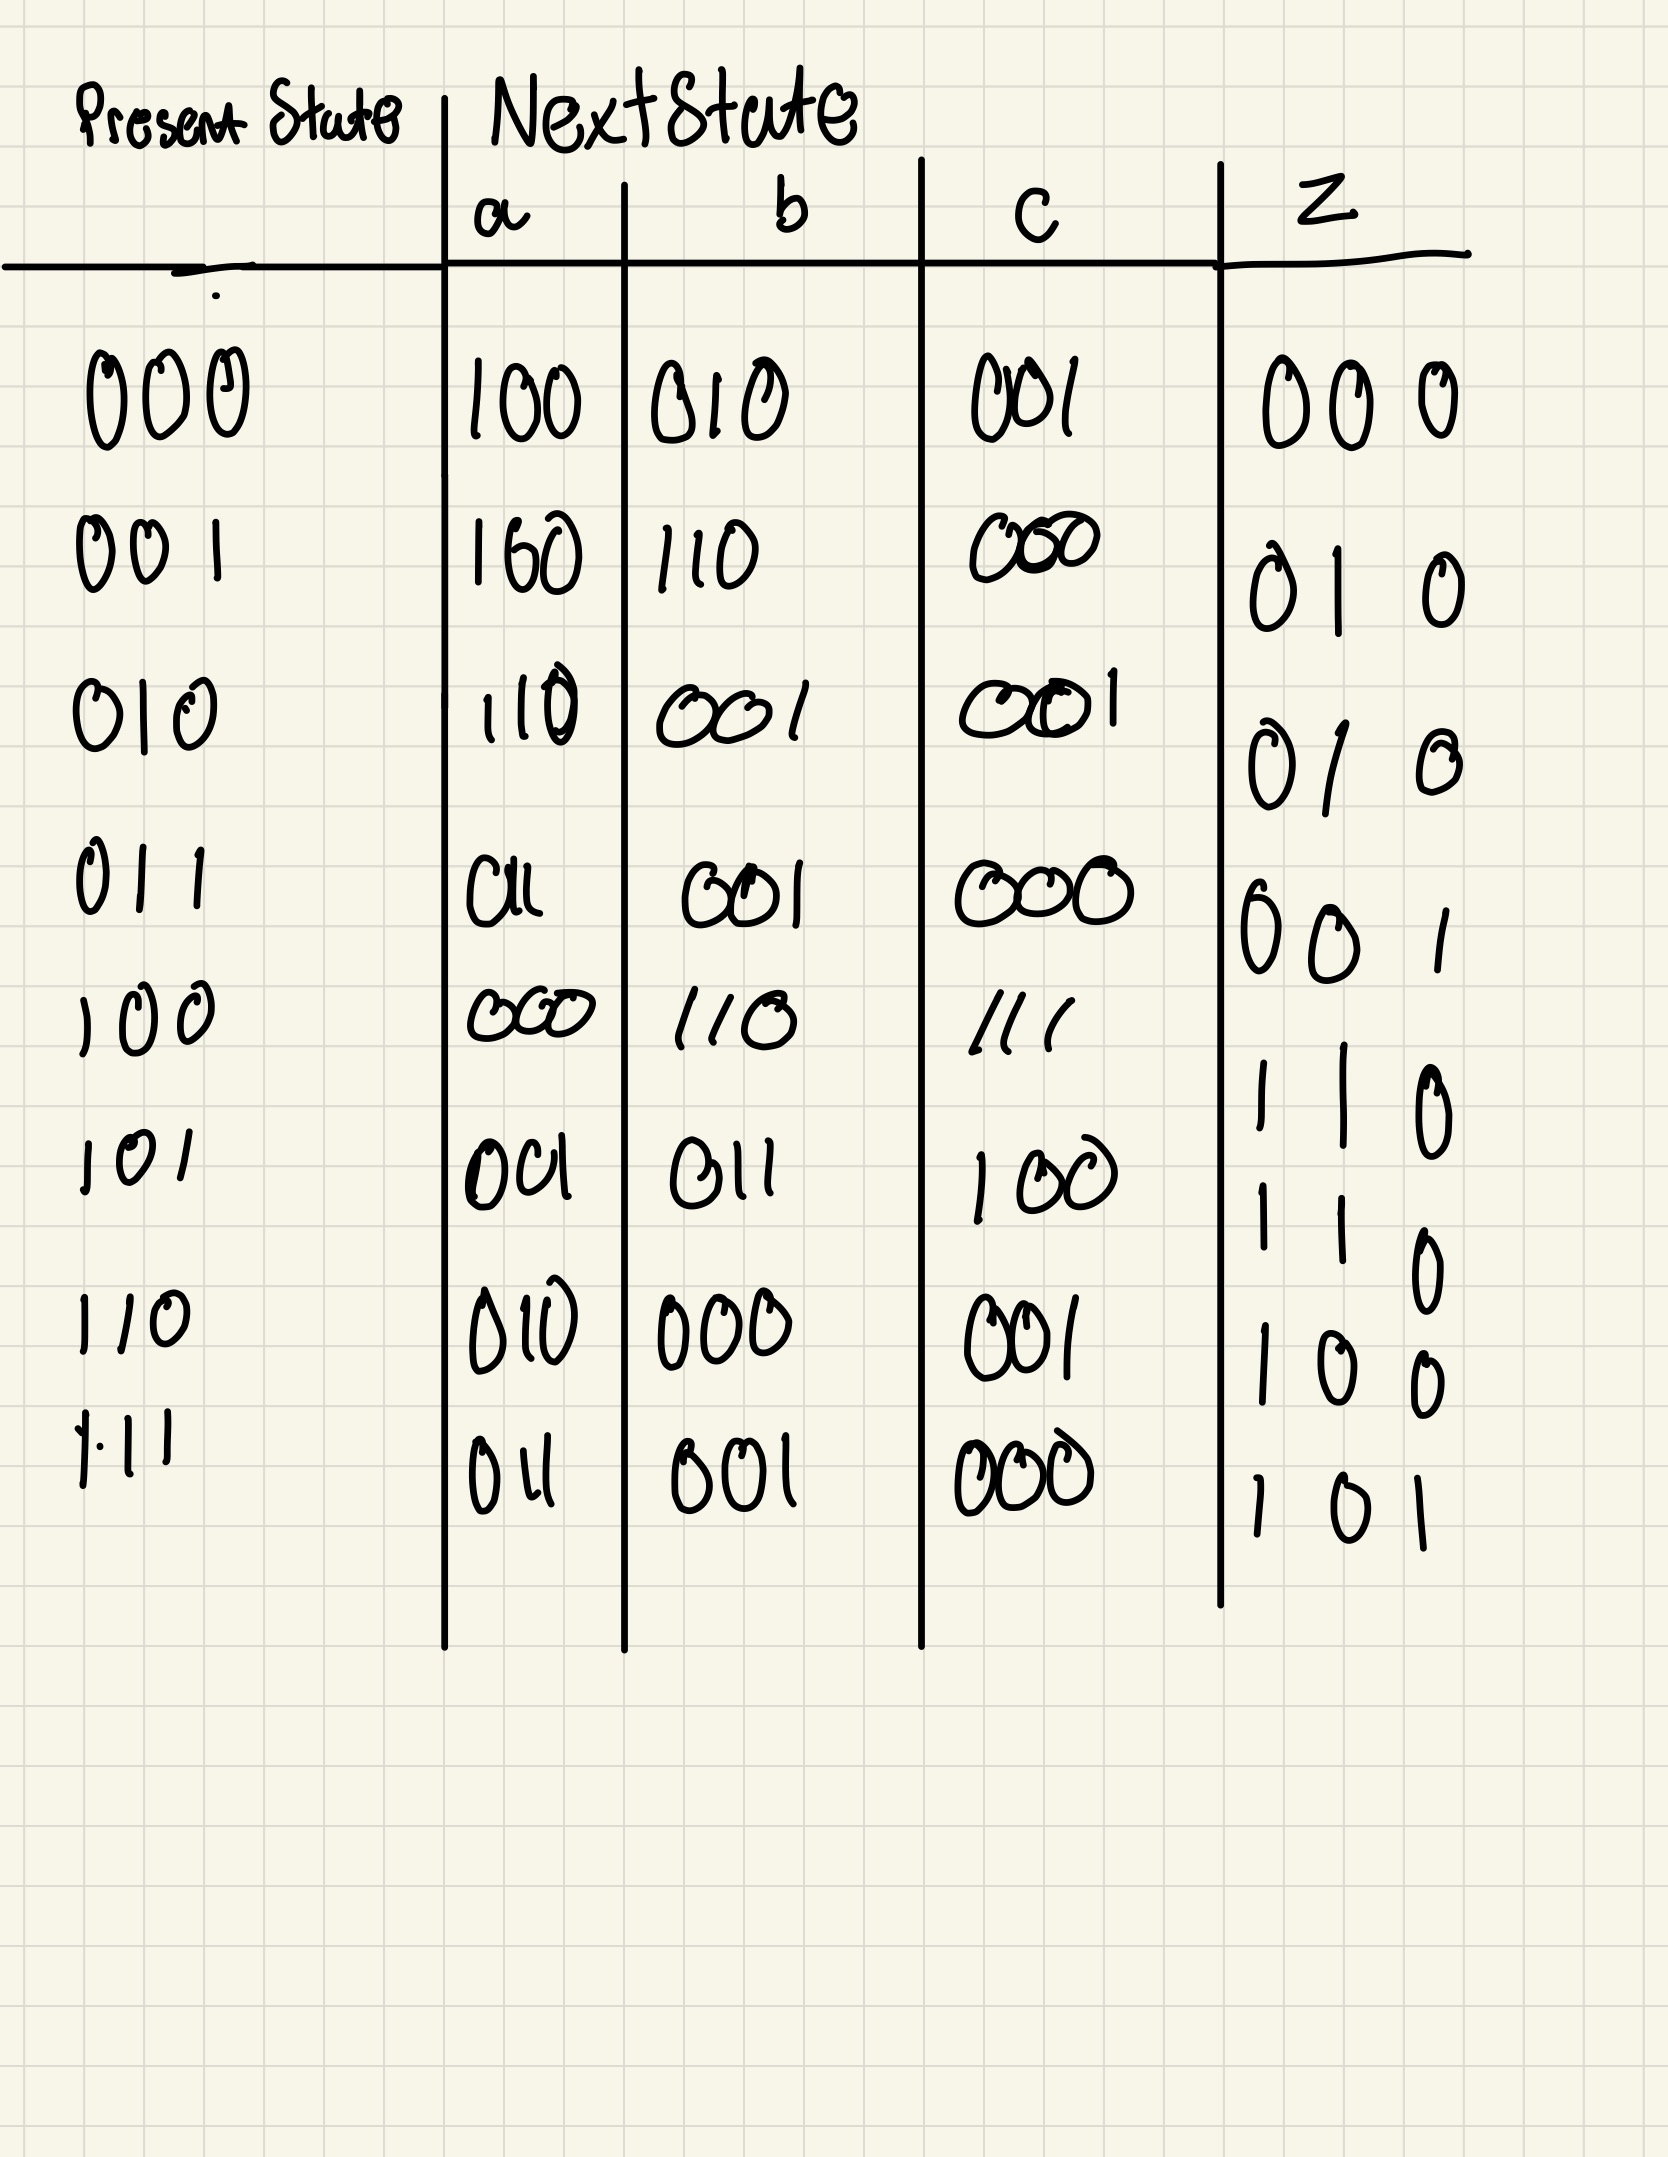 Present State Next State
a b c Z
000 100 010 001 000
001 100 110 000 010
010 110 001 0001 010
011 011 001 000 001
100 000 110 111 110
101 001 011 100 110
110 010 000 001 100
111 011 001 000 101